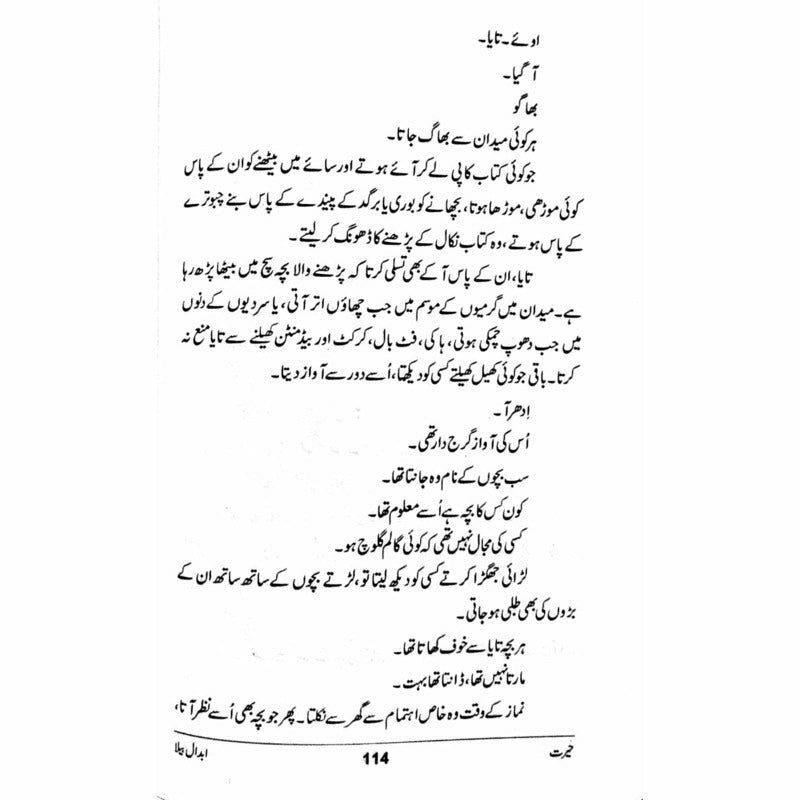 اوئے۔ تایا۔
آ گیا۔
بھاگو
ہر کوئی میدان سے بھاگ جاتا۔
جو کوئی کتاب کاپی لے کر آئے ہوتے اور سائے میں بیٹھنے کو ان کے پاس
کوئی موڑھی، موڑھا ہوتا، بچھانے کو بوری یا برگد کے پیندے کے پاس بنے چبوترے
کے پاس ہوتے، وہ کتاب نکال کے پڑھنے کا ڈھونگ کر لیتے۔
تایا، ان کے پاس آ کے بھی تسلی کرتا کہ پڑھنے والا بچہ سچ میں بیٹھا پڑھ رہا
ہے۔ میدان میں گرمیوں کے موسم میں جب چھاؤں اتر آتی، یا سردیوں کے دنوں
میں جب دھوپ چمکی ہوتی، ہاکی، فٹ بال، کرکٹ اور بیڈمنٹن کھیلنے سے تایا منع نہ
کرتا۔ باقی جو کوئی کھیل کھیلتے کسی کو دیکھتا، اُسے دور سے آواز دیتا۔
اِدھر آ۔
اُس کی آواز گرج دار تھی۔
سب بچوں کے نام وہ جانتا تھا۔
کون کس کا بچہ ہے اُسے معلوم تھا۔
کسی کی مجال نہیں تھی کہ کوئی گالم گلوچ ہو۔
لڑائی جھگڑا کرتے کسی کو دیکھ لیتا تو، لڑتے بچوں کے ساتھ ساتھ ان کے
بڑوں کی بھی طلبی ہو جاتی۔
ہر بچہ تایا سے خوف کھاتا تھا۔
مارتا نہیں تھا، ڈانتا تھا بہت۔
نماز کے وقت وہ خاص اہتمام سے گھر سے نکلتا۔ پھر جو بچہ بھی اُسے نظر آتا،
حیرت 114 ابدال بیلا